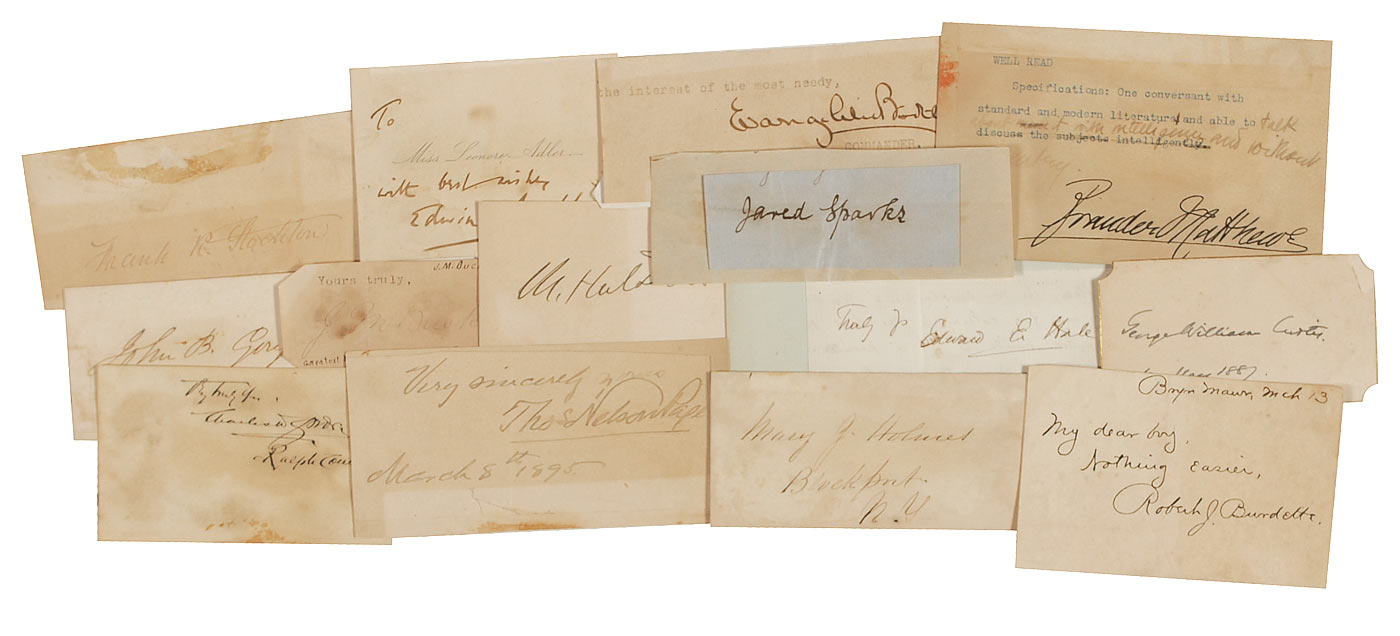 Frank R. Stockton
To
Miss Leonore Adler
with best wishes
Edwin
the interest of the most needy,
Evangeline Booth
COMMANDER.
WELL READ
Specifications: One conversant with
standard and modern literature and able to talk
discuss the subjects intelligently.
and without
Brander Matthews
Jared Sparks
John B. Gou
J.M.BUC
Yours truly,
M. Hal
Truly yr
Edward E. Hale
George William Curtis.
1887.
Charles W. Gordon
Ralph Conn
Very sincerely yours
Thos Nelson Page
March 8th 1895
Mary J. Holmes
Brockport
N. Y
Bryn Mawr, Mch 13
My dear boy,
Nothing easier,
Robert J. Burdette.